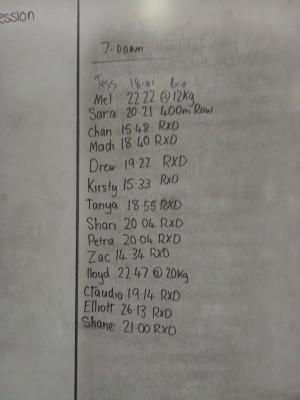 ession
7:00am
Jess 18.01 Rxd
Mel 22 22 @ 12kg
Sara 20.21 400m Row
Chan 15.48 RXD
Madi 18.40 RXD
Drew 19 22 RXD
Kirsty 15.33 RXD
Tanya 18.55 RXD
Shari 20 04 RXD
Petra 20.04 RXD
Zac 14.34 RXD
lloyd 22.47 @ 20kg
Claudio 19.14 RXD
Elliott 26.13 RXD
Shane 21.00 RXD